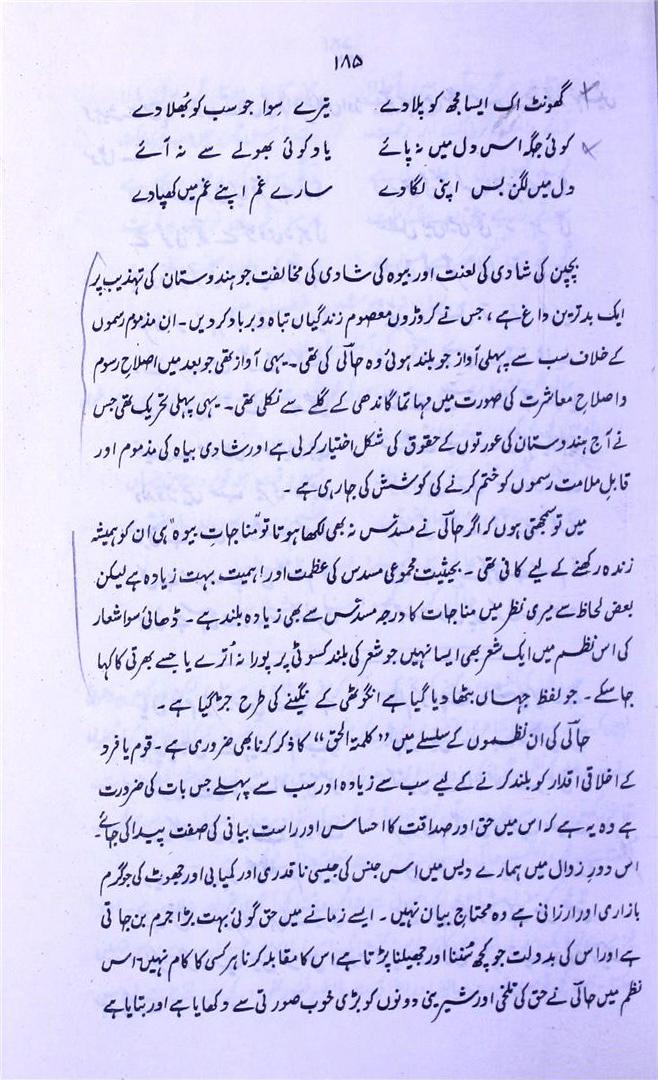 ۱۸۵
گھونٹ اک ایسا مجھ کو پلا دے تیرے سِوا جو سب کو بُھلا دے
کوئی جگہ اس دل میں نہ پائے یاد کوئی بھولے سے نہ آئے
دل میں لگن بس اپنی لگا دے سارے غم اپنے غم میں کھپا دے
بچپن کی شادی کی لعنت اور بیوہ کی شادی کی مخالفت جو ہندوستان کی تہذیب پر
ایک بدترین داغ ہے، جس نے کروڑوں معصوم زندگیاں تباہ و برباد کر دیں۔ ان مذموم رسموں
کے خلاف سب سے پہلی آواز جو بلند ہوئی وہ حالؔی کی تھی۔ یہی آواز تھی جو بعد میں اصلاحِ رسوم
و اصلاحِ معاشرت کی صورت میں مہاتما گاندھی کے گلے سے نکلی تھی۔ یہی پہلی تحریک تھی جس
نے آج ہندوستان کی عورتوں کے حقوق کی شکل اختیار کر لی ہے اور شادی بیاہ کی مذموم اور
قابلِ ملامت رسموں کو ختم کرنے کی کوشش کی جا رہی ہے۔
میں تو سمجھتی ہوں کہ اگر حالؔی نے مسدّس نہ بھی لکھا ہوتا تو "مناجاتِ بیوہ" ہی ان کو ہمیشہ
زندہ رکھنے کے لیے کافی تھی۔ بحیثیت مجموعی مسدس کی عظمت اور اہمیت بہت زیادہ ہے لیکن
بعض لحاظ سے میری نظر میں مناجات کا درجہ مسدّس سے بھی زیادہ بلند ہے۔ ڈھائی سو اشعار
کی اس نظم میں ایک شعر بھی ایسا نہیں جو شعر کی بلند کسوٹی پر پورا نہ اُترے یا جسے بھرتی کا کہا
جا سکے۔ جو لفظ جہاں بٹھا دیا گیا ہے انگوٹھی کے نگینے کی طرح جڑ گیا ہے۔
حالؔی کی ان نظموں کے سلسلے میں "کلمۃ الحق" کا ذکر کرنا بھی ضروری ہے۔ قوم یا فرد
کے اخلاقی اقدار کو بلند کرنے کے لیے سب سے زیادہ اور سب سے پہلے جس بات کی ضرورت
ہے وہ یہ ہے کہ اس میں حق اور صداقت کا احساس اور راست بیانی کی صفت پیدا کی جائے۔
اس دورِ زوال میں ہمارے دیس میں اس جنس کی جیسی ناقدری اور کمیابی اور جھوٹ کی جو گرم
بازاری اور ارزانی ہے وہ محتاجِ بیان نہیں۔ ایسے زمانے میں حق گوئی بہت بڑا جرم بن جاتی
ہے اور اس کی بدولت جو کچھ سُننا اور جھیلنا پڑتا ہے اس کا مقابلہ کرنا ہر کسی کا کام نہیں۔ اس
نظم میں حالؔی نے حق کی تلخی اور شیرینی دونوں کو بڑی خوب صورتی سے دکھایا ہے اور بتایا ہے